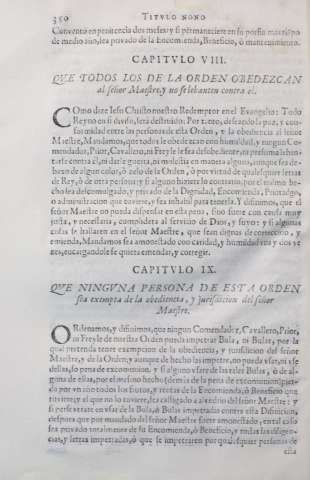 350 TITVLO NONO
Convento en penitencia dos meses: y si permaneciere en su porfia mas tiẽpo
de medio año, sea privado de la Encomienda, Beneficio, ò mantenimiento.
CAPITVLO VIII.
QVE TODOS LOS DE LA ORDEN OBEDEZCAN
al señor Maestre, y no se levanten contra el.
COmo dize Iesu Christo nuestro Redemptor en el Evangelio: Todo
Reyno en si diviso, serà destruido: Por tanto, deseando la paz, y con-
formidad entre las personas de esta Orden, y la obediencia al señor
Maestre, Mandamos, que todos le obedezcan con humildad, y ningun Co-
mendador, Prior, Cavallero, ni Freyle sea desobediente, ni presuma leban-
tarse contra él, ni darle guerra, ni molestia en manera alguna, aunque sea de-
baxo de algun color, ò zelo de la Orden, ò por virtud de qualesquier letras
de Rey, ò de otra persona: y si alguno hiziere lo contrario, por el mismo he-
cho sea descomulgado, y privado de la Dignidad, Encomienda, Priorazgo,
o administracion que tuviere, y sea inhabil para tenerla. Y difinimos, que el
señor Maestre no pueda dispensar en esta pena, sino fuere con causa muy
justa, y necessaria, complidera al servicio de Dios, y suyo: y si algunas
cosas se hallaren en el señor Maestre, que sean dignas de correccion, y
emienda, Mandamos sea amonestado con caridad, y humildad vna y dos ve-
zes, encargandole se quiera emendar, y corregir.
CAPITVLO IX.
QVE NINGVNA PERSONA DE ESTA ORDEN
sea exempta de la obediencia, y jurisdicion del señor
Maestre.
ORdenamos, y difinimos, que ningun Comendador, Cavallero, Prior,
ni Freyle de nuestra Orden pueda impetrar Bula, ni Bulas, por la
qual pretenda tener exempcion de la obediencia, y jurisdicion del señor
Maestre, y de la Orden, y aunque de hecho las impetre, no pueda vsar, ni vse
dellas, so pena de excomunion. y si alguno vsare de las tales Bulas, ò de al-
guna de ellas, por el mesmo hecho (demàs de la pena de excomunion) pier-
da por vn año todos los frutos, y rentas de la Encomienda, ò Beneficio que
tuviere, y el que no lo tuviere, sea castigado à alvedrio del señor Maestre: y
si perseverare en vsar de la Bula, ò Bulas impetradas contra esta Difinicion,
despues que por mandado del señor Maestre fuere amonestado, en tal caso
sea privado totalmente de su Encomienda, ò Beneficio, y todas las diligen-
cias, y letras impetradas, ò que se impetraren por qualesquier personas de
esta